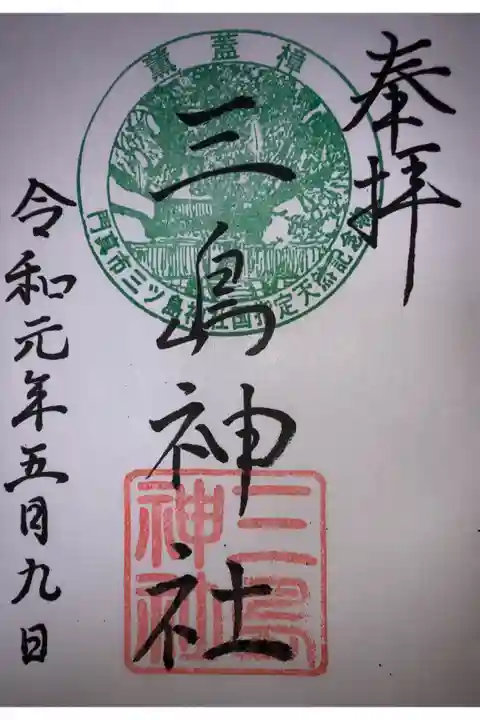 奉拝
薫蓋樟
門真市三ツ島神社国指定天然記念物
三島神社
三島神社
令和元年五月九日